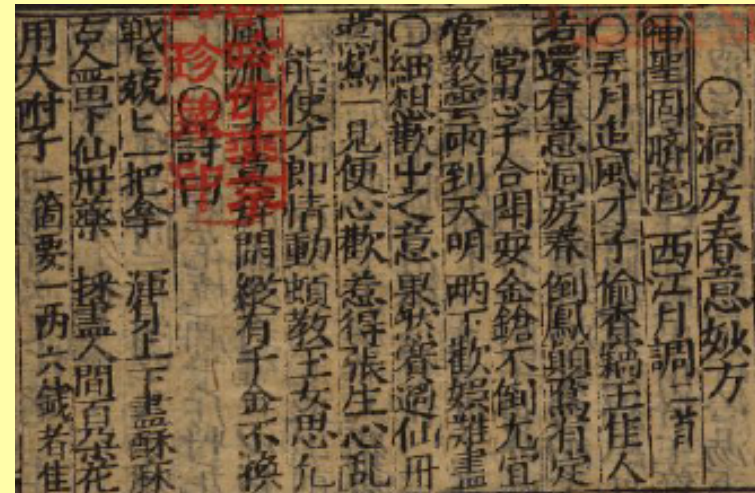 〇洞房春意妙方
神聖固臍膏 西江月調二首
〇弄月追風才子 偷香竊玉佳人
若還有意洞房春 倒鳳顛鸞有定
當 合 要 金鎗不倒尤宜
管教雲雨到天明 兩下歡娛難盡
〇細想歡出之意 果然賽過仙丹
鶯鶯一見便心歡 惹得張生心亂
能使才郎情動 頻教玉女思凡
風流才子 閑 縱有千金不換
〇詩曰
戰匕兢匕一把拿 渾身上下盡酥麻
人畱下仙丹藥 採盡人間百朵花
用大附子一箇要一兩六錢者佳
哈佛
珍藏印